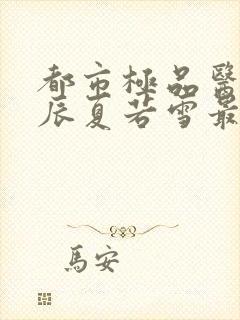 都市極品醫
辰夏若雪最
馬安